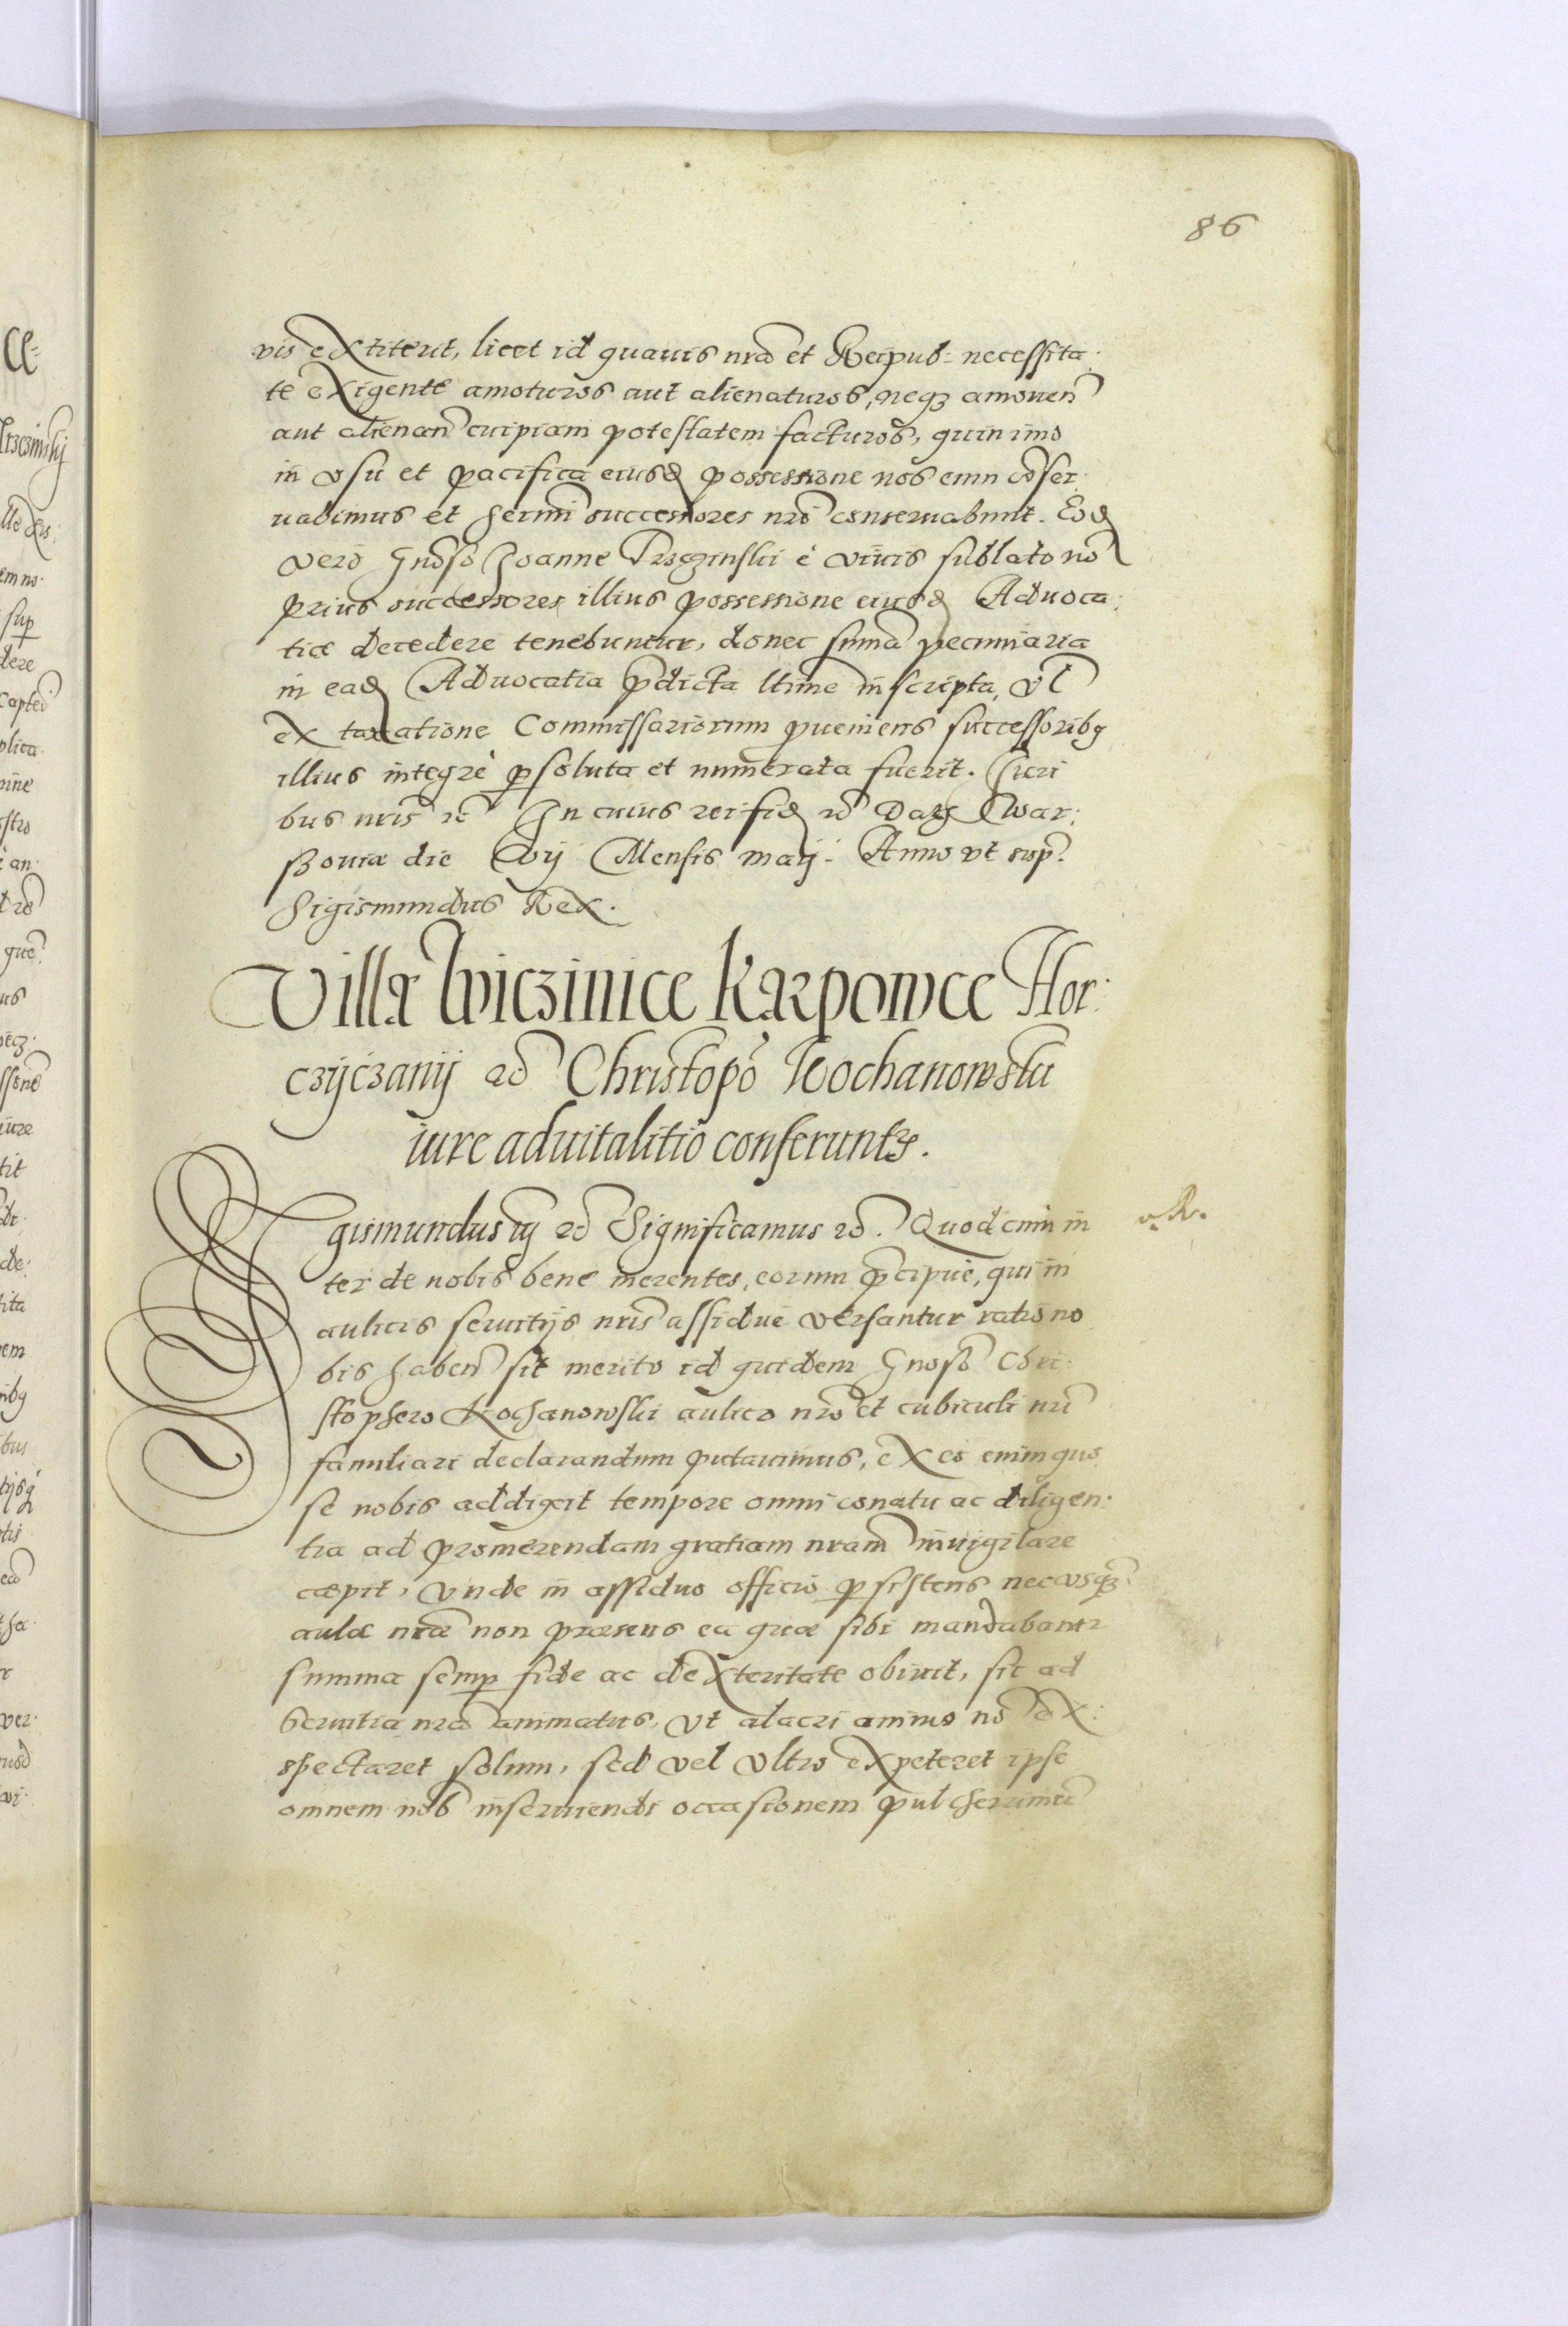 86
vis extiterit, licet id quavis nrã et Reipub: necessita
te exigente amoturos aut alienaturos, neq3 amouen̄
aut alienan̄ cuipiam potestatem facturos, quin imo
in vsu et pacifica eiusd possessione nos eum cōser
uabimus et sermi successores nri conseruabunt. Eod
vero Gnoso Joanne Trzczinski è viuis sublato nō
prius successores illius possessione eiusd Aduoca:
tiæ decedere tenebuntur, donec sum̄a pecuniaria
in ead Aduocatia p̄dicta ltime inscripta, vl
ex taxatione Commissariorum proueniens successorib9
illius integrè psoluta et numerata fuerit. Juri
bus nris etc In cuius rei fid etc Dat War:
ßouiæ die Xvij Mensis maij. Anno vt sup.
Sigismundus Rex.
Villæ Wiczinice Karpowce Hor:
czijczanij ac Christopō Kochanowski
iure aduitalitio conferuntr.
Sigismundus iij etc Significamus etc. Quod cum in
v. R.
ter de nobis bene merentes, eorum p̄cipue, qui in
aulicis seruitijs nris assidue versantur ratio no
bis haben̄ sit merito id quidem Gnoso Chri
stophero Kochanowski aulico nro et cubiculi nri
familiari declarandum putauimus, ex eo enim quo
se nobis addixit tempore omni conatu ac diligen:
tia ad promerendam gratiam nram inuigilare
cæpit, vnde in assiduo officio psistens nec vsq3
aulæ nræ non præsens ea quæ sibi mandabantr
summa semp fide ac dexteritate obiuit, sic ad
seruitia nrã animatus, vt alacri animo nō ex:
spectaret solum, sed vel vltro expeteret ipse
omnem nob inseruiendi occasionem pulcherrimū